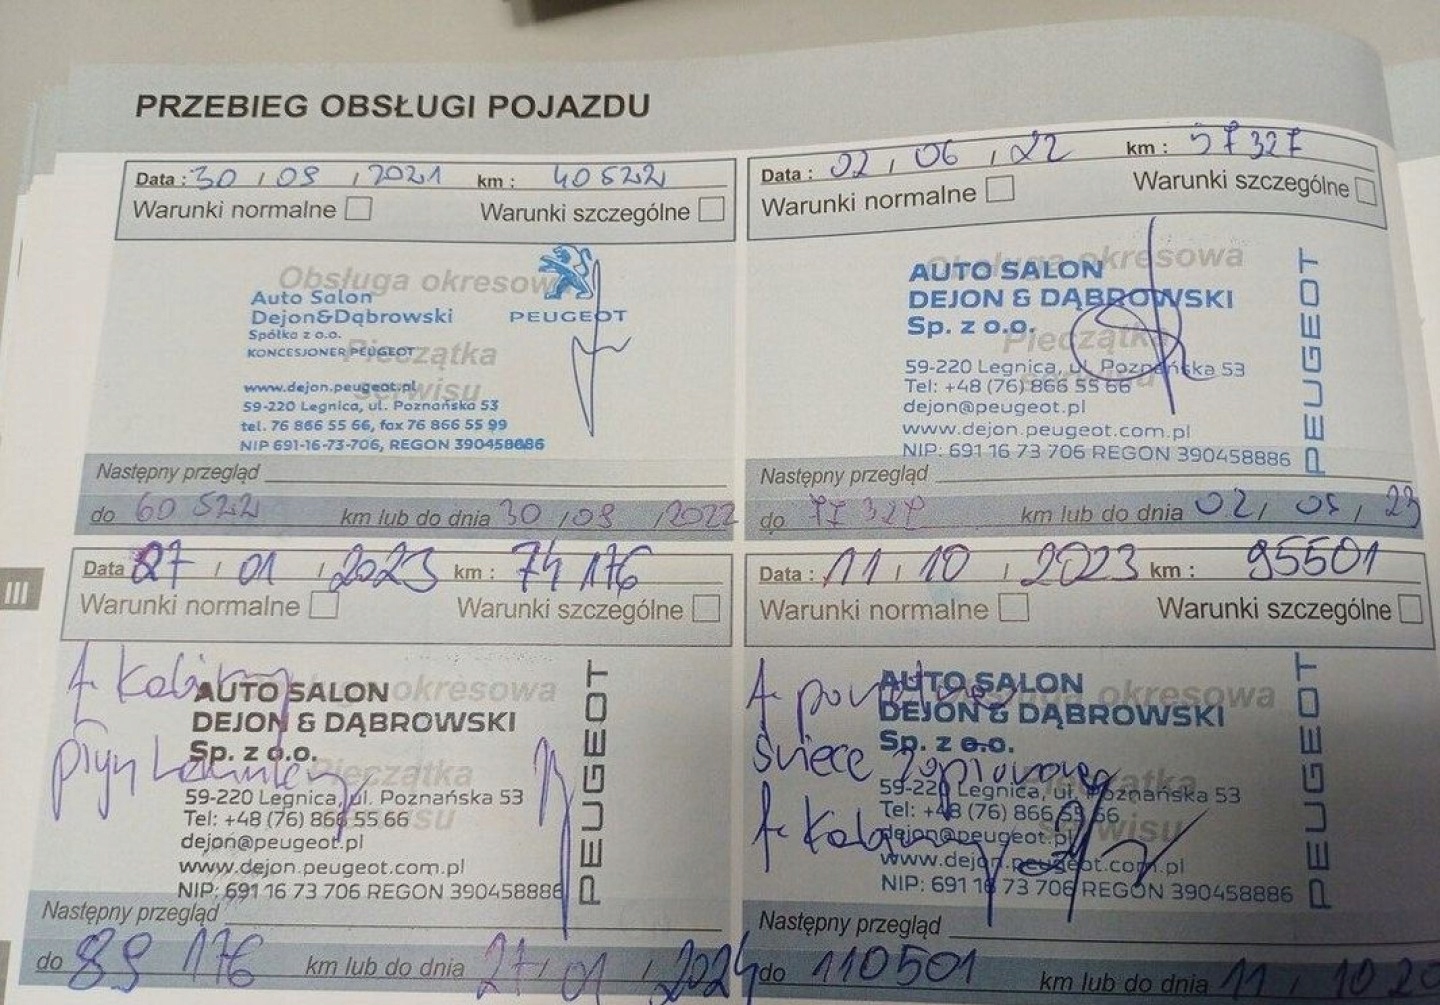 PRZEBIEG OBSŁUGI POJAZDU
Data : 30 / 09 / 2021 km : 40522
Warunki normalne Warunki szczególne
Obsługa okresowa
Pieczątka
serwisu
Auto Salon
Dejon&Dąbrowski
Spółka z o.o.
KONCESJONER PEUGEOT
www.dejon.peugeot.pl
59-220 Legnica, ul. Poznańska 53
tel. 76 866 55 66, fax 76 866 55 99
NIP 691-16-73-706, REGON 390458886
PEUGEOT
Następny przegląd
do 60 522 km lub do dnia 30 / 09 / 2022
Data : 02 / 06 / 22 km : 57327
Warunki normalne Warunki szczególne
Obsługa okresowa
Pieczątka
AUTO SALON
DEJON & DĄBROWSKI
Sp. z o.o.
59-220 Legnica, ul. Poznańska 53
Tel: +48 (76) 866 55 66
dejon@peugeot.pl
www.dejon.peugeot.com.pl
NIP: 691 16 73 706 REGON 390458886
PEUGEOT
Następny przegląd
do 77 327 km lub do dnia 02 / / 23
III
Data 27 / 01 / 2023 km : 74 176
Warunki normalne Warunki szczególne
f. Kabinowy
płyn hamulcowy
okresowa
Pieczątka
AUTO SALON
DEJON & DĄBROWSKI
Sp. z o.o.
59-220 Legnica, ul. Poznańska 53
Tel: +48 (76) 866 55 66
dejon@peugeot.pl
www.dejon.peugeot.com.pl
NIP: 691 16 73 706 REGON 390458886
PEUGEOT
Następny przegląd
do 89 176 km lub do dnia 27 / 01 / 2024
Data : 11 / 10 / 2023 km : 95501
Warunki normalne Warunki szczególne
f. powietrza
świece zapłonowe
f. Kabinowy
okresowa
Pieczątka
serwisu
AUTO SALON
DEJON & DĄBROWSKI
Sp. z o.o.
59-220 Legnica, ul. Poznańska 53
Tel: +48 (76) 866 55 66
dejon@peugeot.pl
www.dejon.peugeot.com.pl
NIP: 691 16 73 706 REGON 390458886
PEUGEOT
Następny przegląd
do 110501 km lub do dnia 11 / 10 20